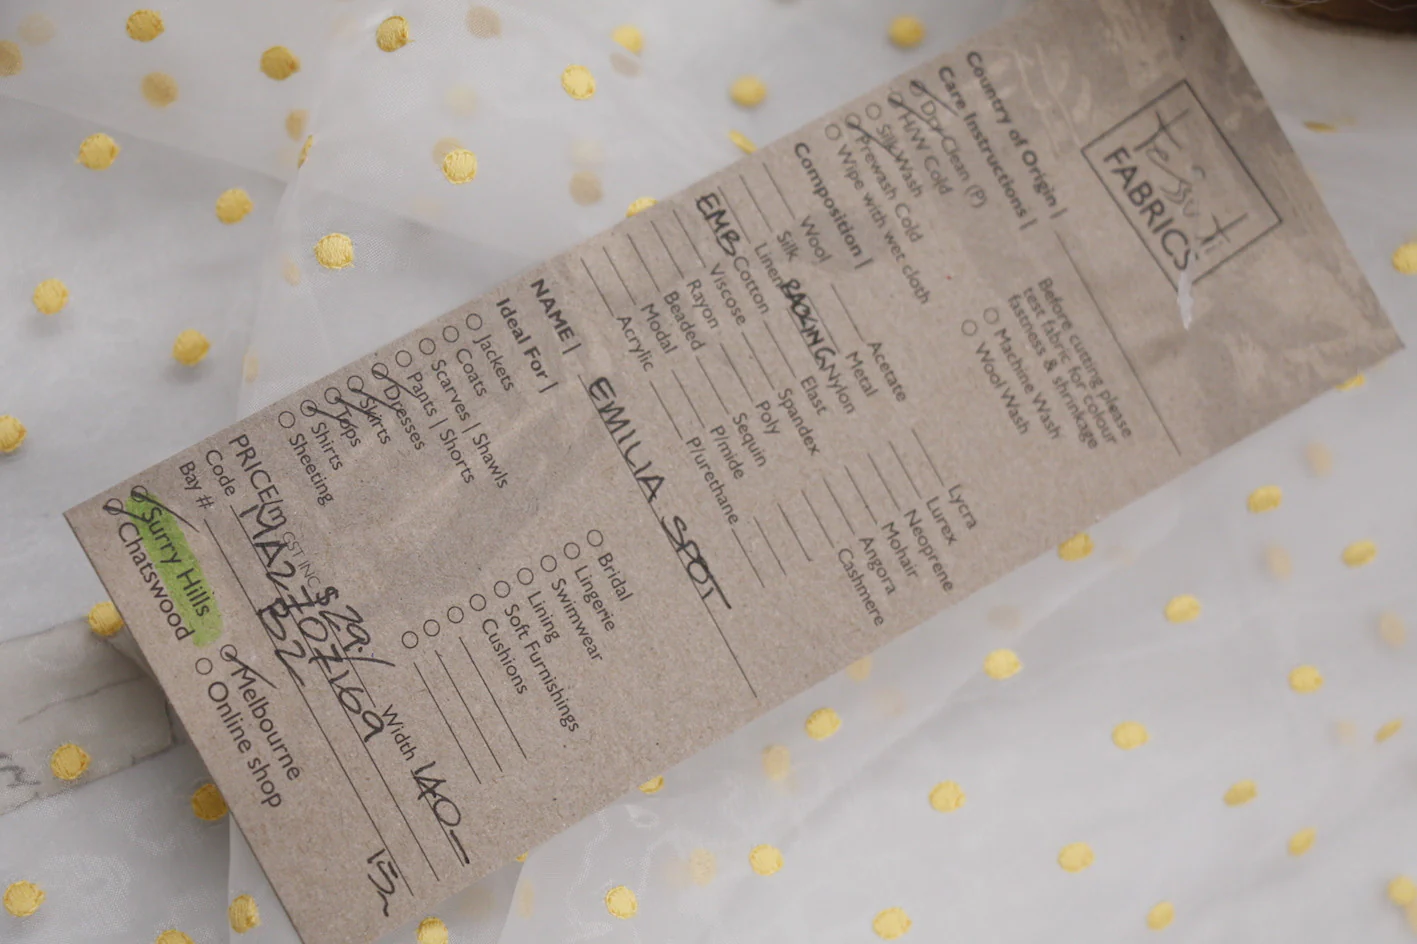 Tessuti
FABRICS
Country of Origin |
Care Instructions |
Dry Clean (P)
H/W Cold
Silk Wash
Prewash Cold
Wipe with wet cloth
Before cutting please
test fabric for colour
fastness & shrinkage
Machine Wash
Wool Wash
Composition |
Wool Acetate Lycra
Silk Metal Lurex
Linen BACKING Nylon Neoprene
EMB Cotton Elast Mohair
Viscose Spandex Angora
Rayon Poly Cashmere
Beaded Sequin
Modal P/mide
Acrylic P/urethane
NAME | EMILIA SPOT
Ideal For |
Jackets Bridal
Coats Lingerie
Scarves | Shawls Swimwear
Pants | Shorts Lining
Dresses Soft Furnishings
Skirts Cushions
Tops
Shirts
Sheeting
PRICE(m GST INC) $29. Width 140
Code MA2707169
Bay # B2
Surry Hills Melbourne
Chatswood Online shop